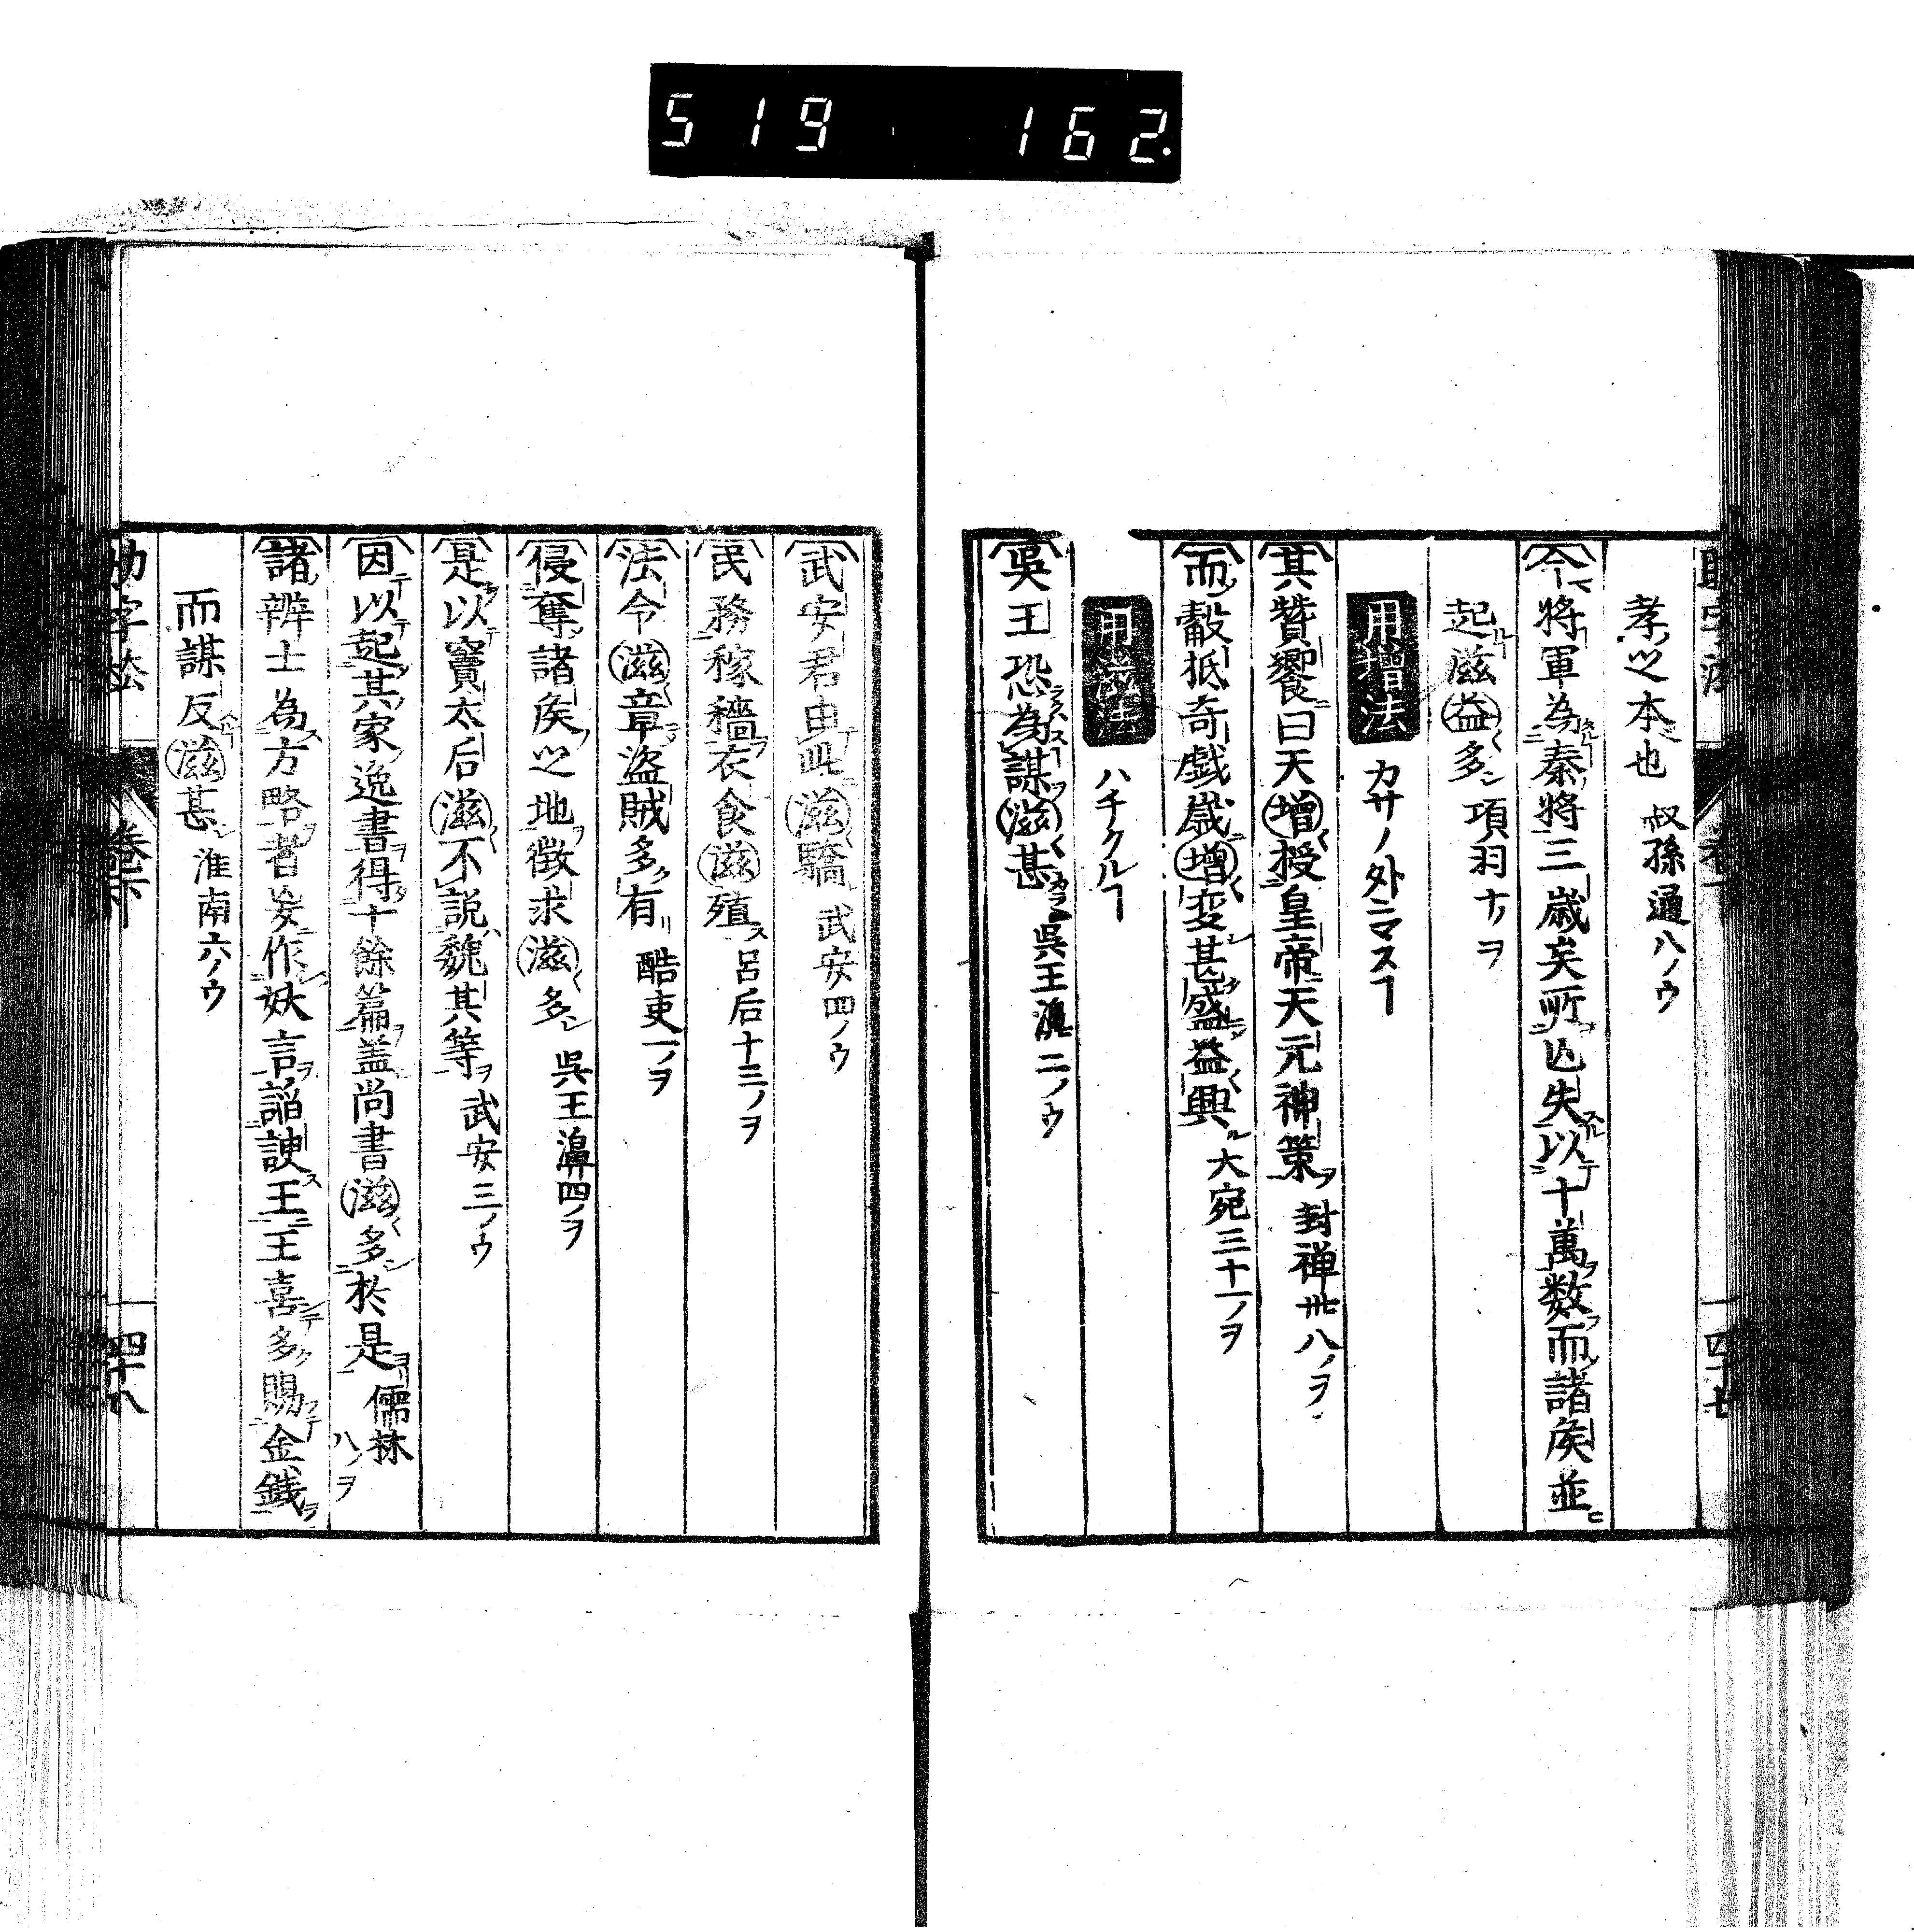 519 162
孝之本也 叔孫通八ノウ
今將軍為秦將三歳矣所亡失以十萬数而諸侯並
起滋益多 項羽十ノヲ
用増法 カサノ外ニマスヿ
其贊饗曰天増授皇帝天元神策 封禅卅八ノヲ
而觳抵奇戯歳増変甚盛益興 大宛三十一ノヲ
用滋法 ハチクルヿ
吳王恐為謀滋甚 吳王濞二ノウ
武安君由此滋驕 武安四ノウ
民務稼穡衣食滋殖 呂后十三ノヲ
法令滋章盗賊多有 酷吏一ノヲ
侵奪諸侯之地徴求滋多 吳王濞四ノヲ
是以竇太后滋不説魏其等 武安三ノウ
因以起其家逸書得十餘篇盖尚書滋多於是 儒林八ノヲ
諸辨士為方略者妄作妖言諂諛王王喜多賜金銭
而謀反滋甚 淮南六ノウ
四十八